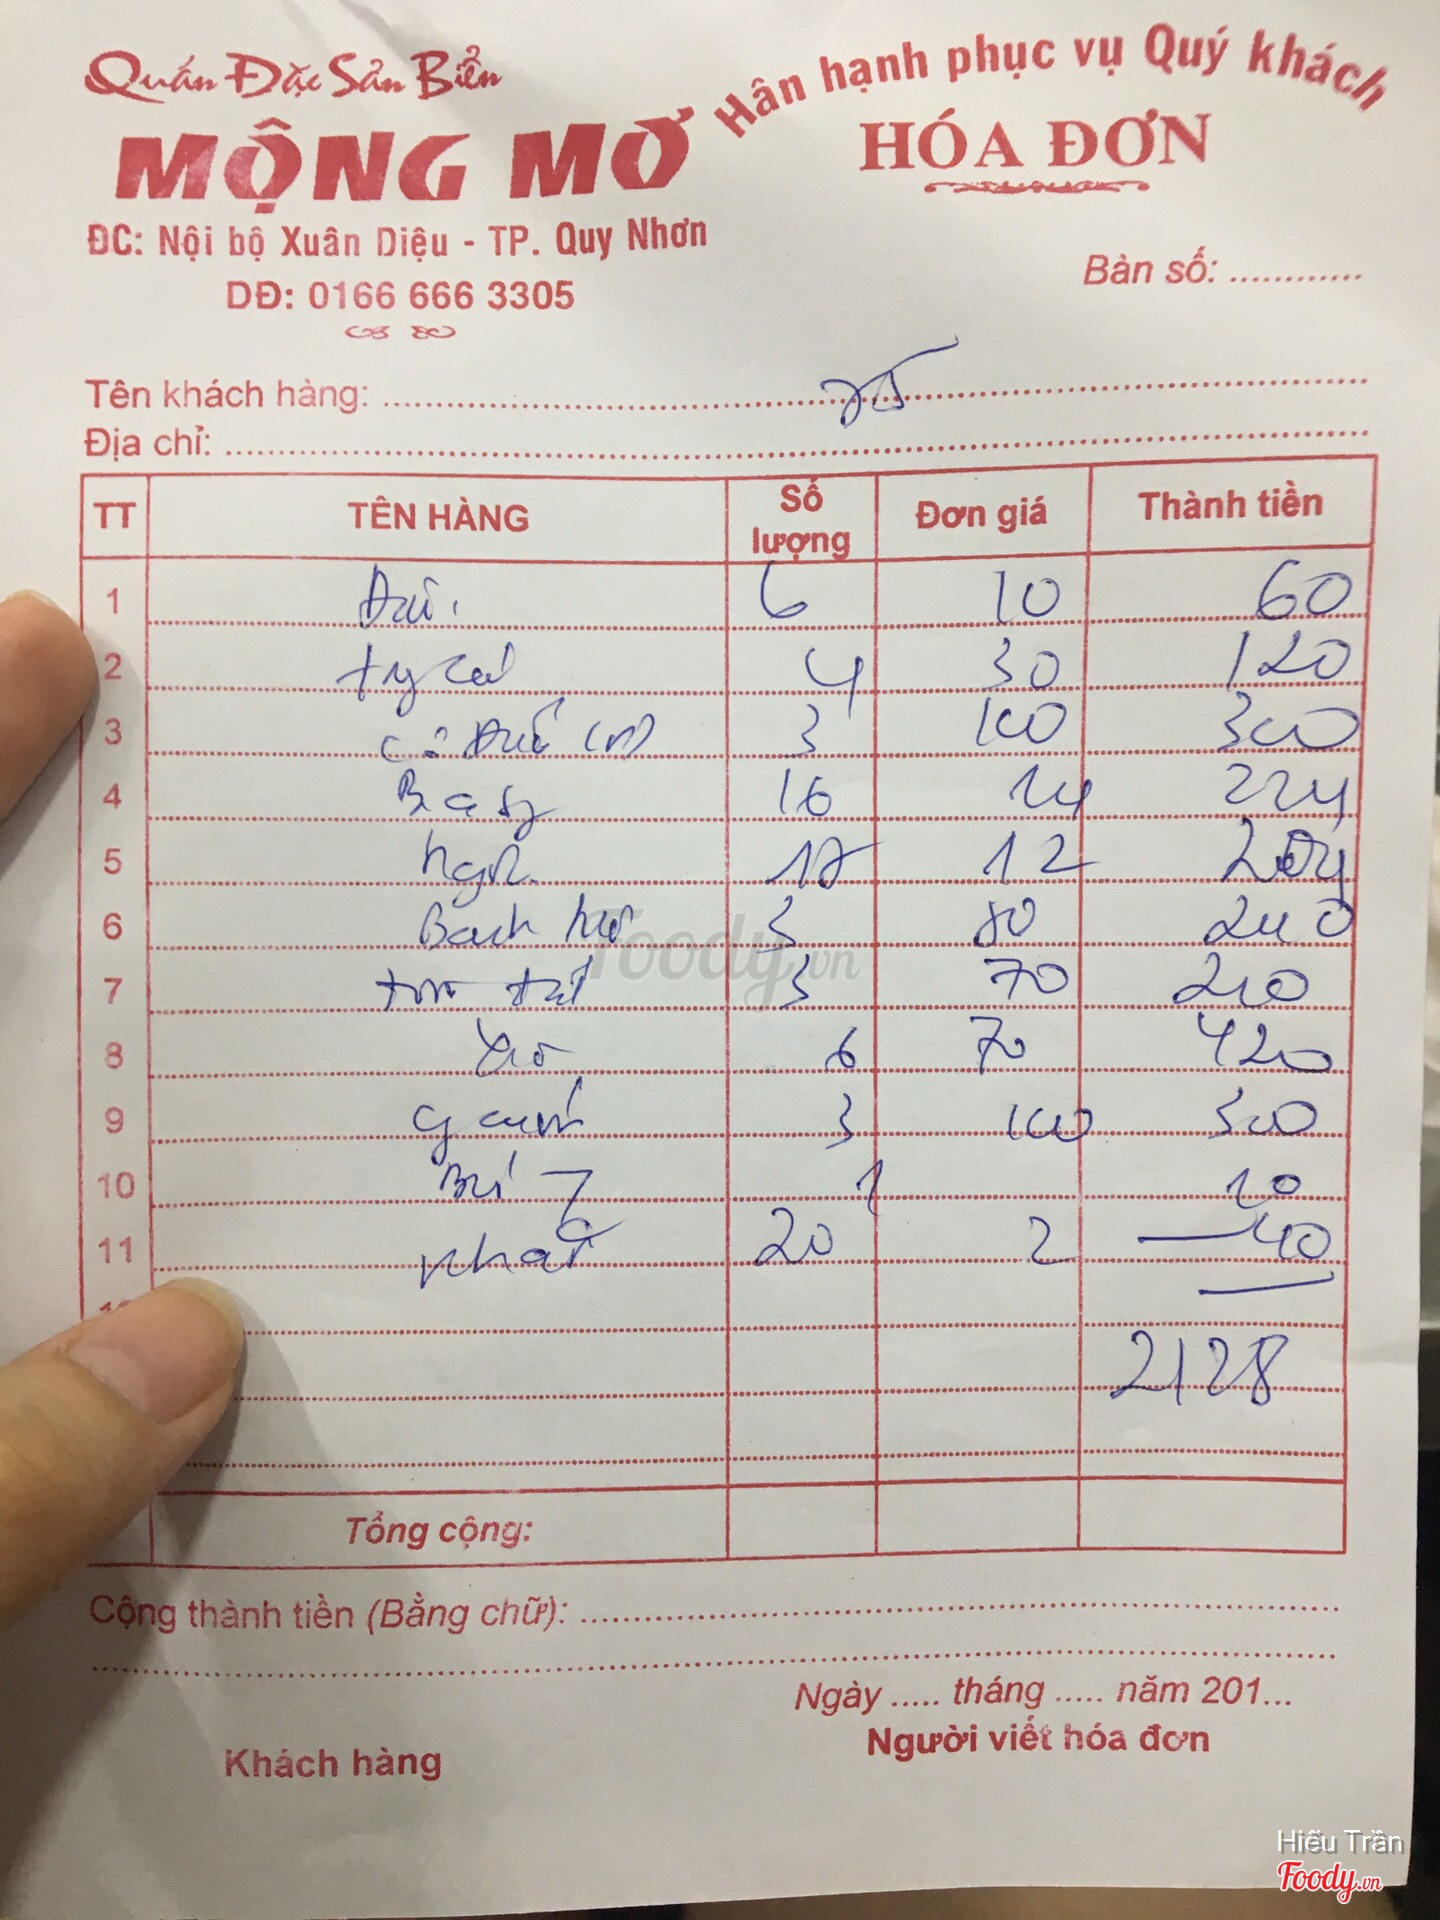 Quán Đặc Sản Biển
MỘNG MƠ
ĐC: Nội bộ Xuân Diệu - TP. Quy Nhơn
DĐ: 0166 666 3305
Hân hạnh phục vụ Quý khách
HÓA ĐƠN
Bàn số: ............
Tên khách hàng:
Địa chỉ:
TT TÊN HÀNG Số lượng Đơn giá Thành tiền
1 6 10 60
2 4 30 120
3 3 100 300
4 16 14 224
5 17 12 204
6 Bạch 3 80 240
7 3 70 210
8 6 70 420
9 3 100 300
10 1 10
11 khăn 20 2 40
2128
Tổng cộng:
Cộng thành tiền (Bằng chữ):
Ngày ..... tháng ..... năm 201...
Khách hàng
Người viết hóa đơn
Foody.vn
Hiếu Trần
Foody.vn